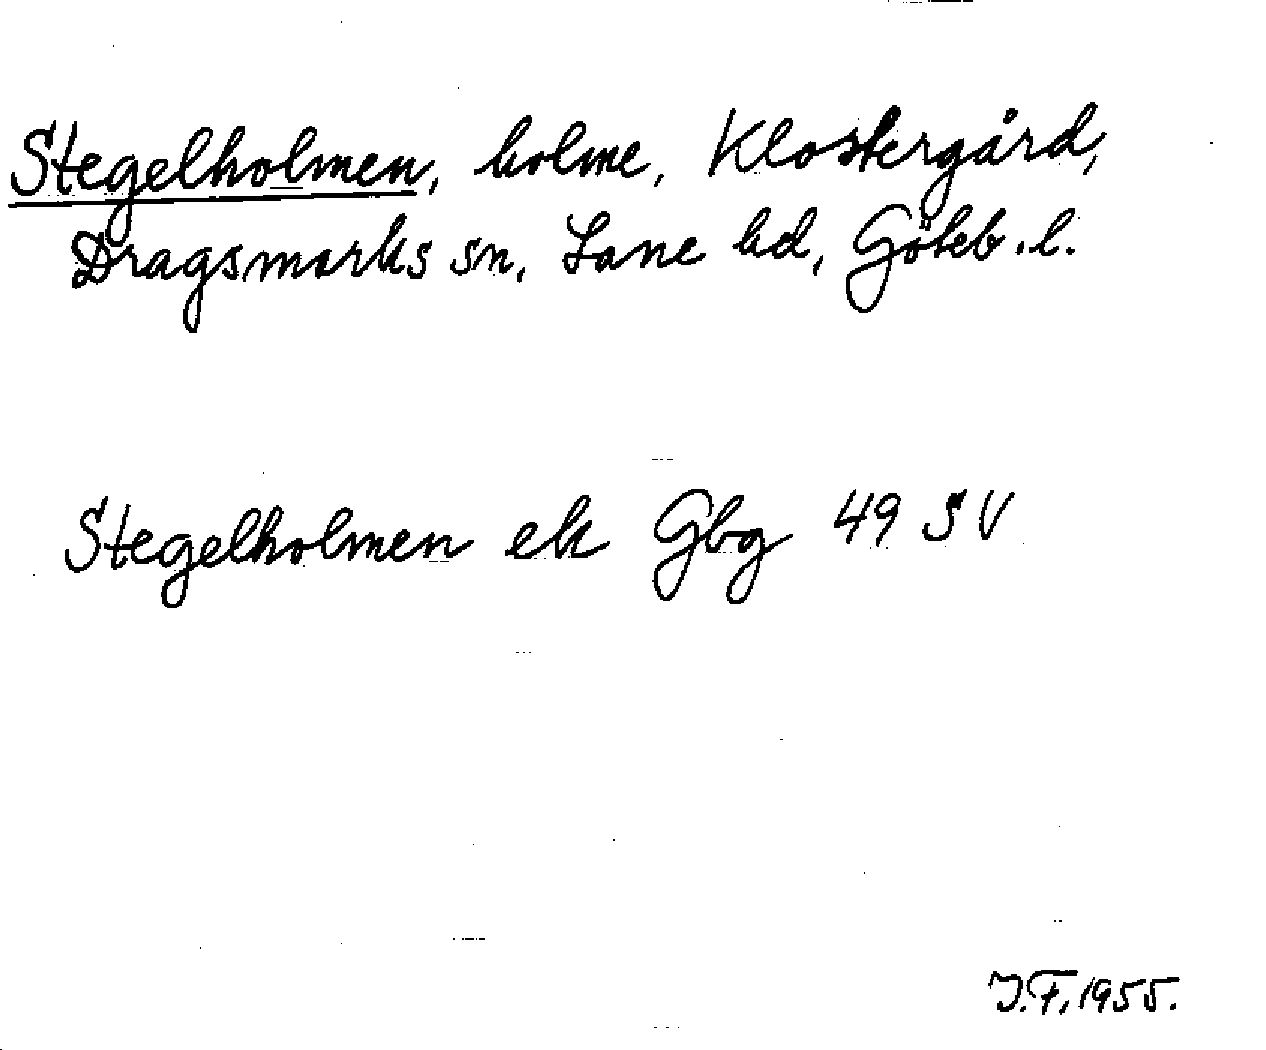 Stegelholmen, holme, Klostergård,
Dragsmarks sn, Lane hd, Göteb. l.
Stegelholmen ek Gbg 49 SV
J.F. 1955.